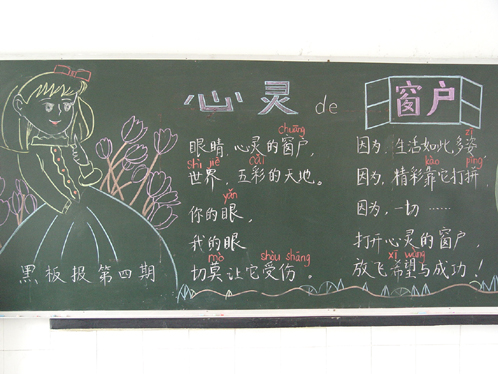 心灵 de 窗户
chuāng
眼睛,心灵的窗户,
shì jiè cǎi
世界,五彩的天地。
yǎn
你的眼,
我的眼
mò shòu shāng
切莫让它受伤。
zī
因为,生活如此多姿
因为,精彩靠它打拼,
因为,一切……
打开心灵的窗户,
xī wàng
放飞希望与成功!
黑板报第四期